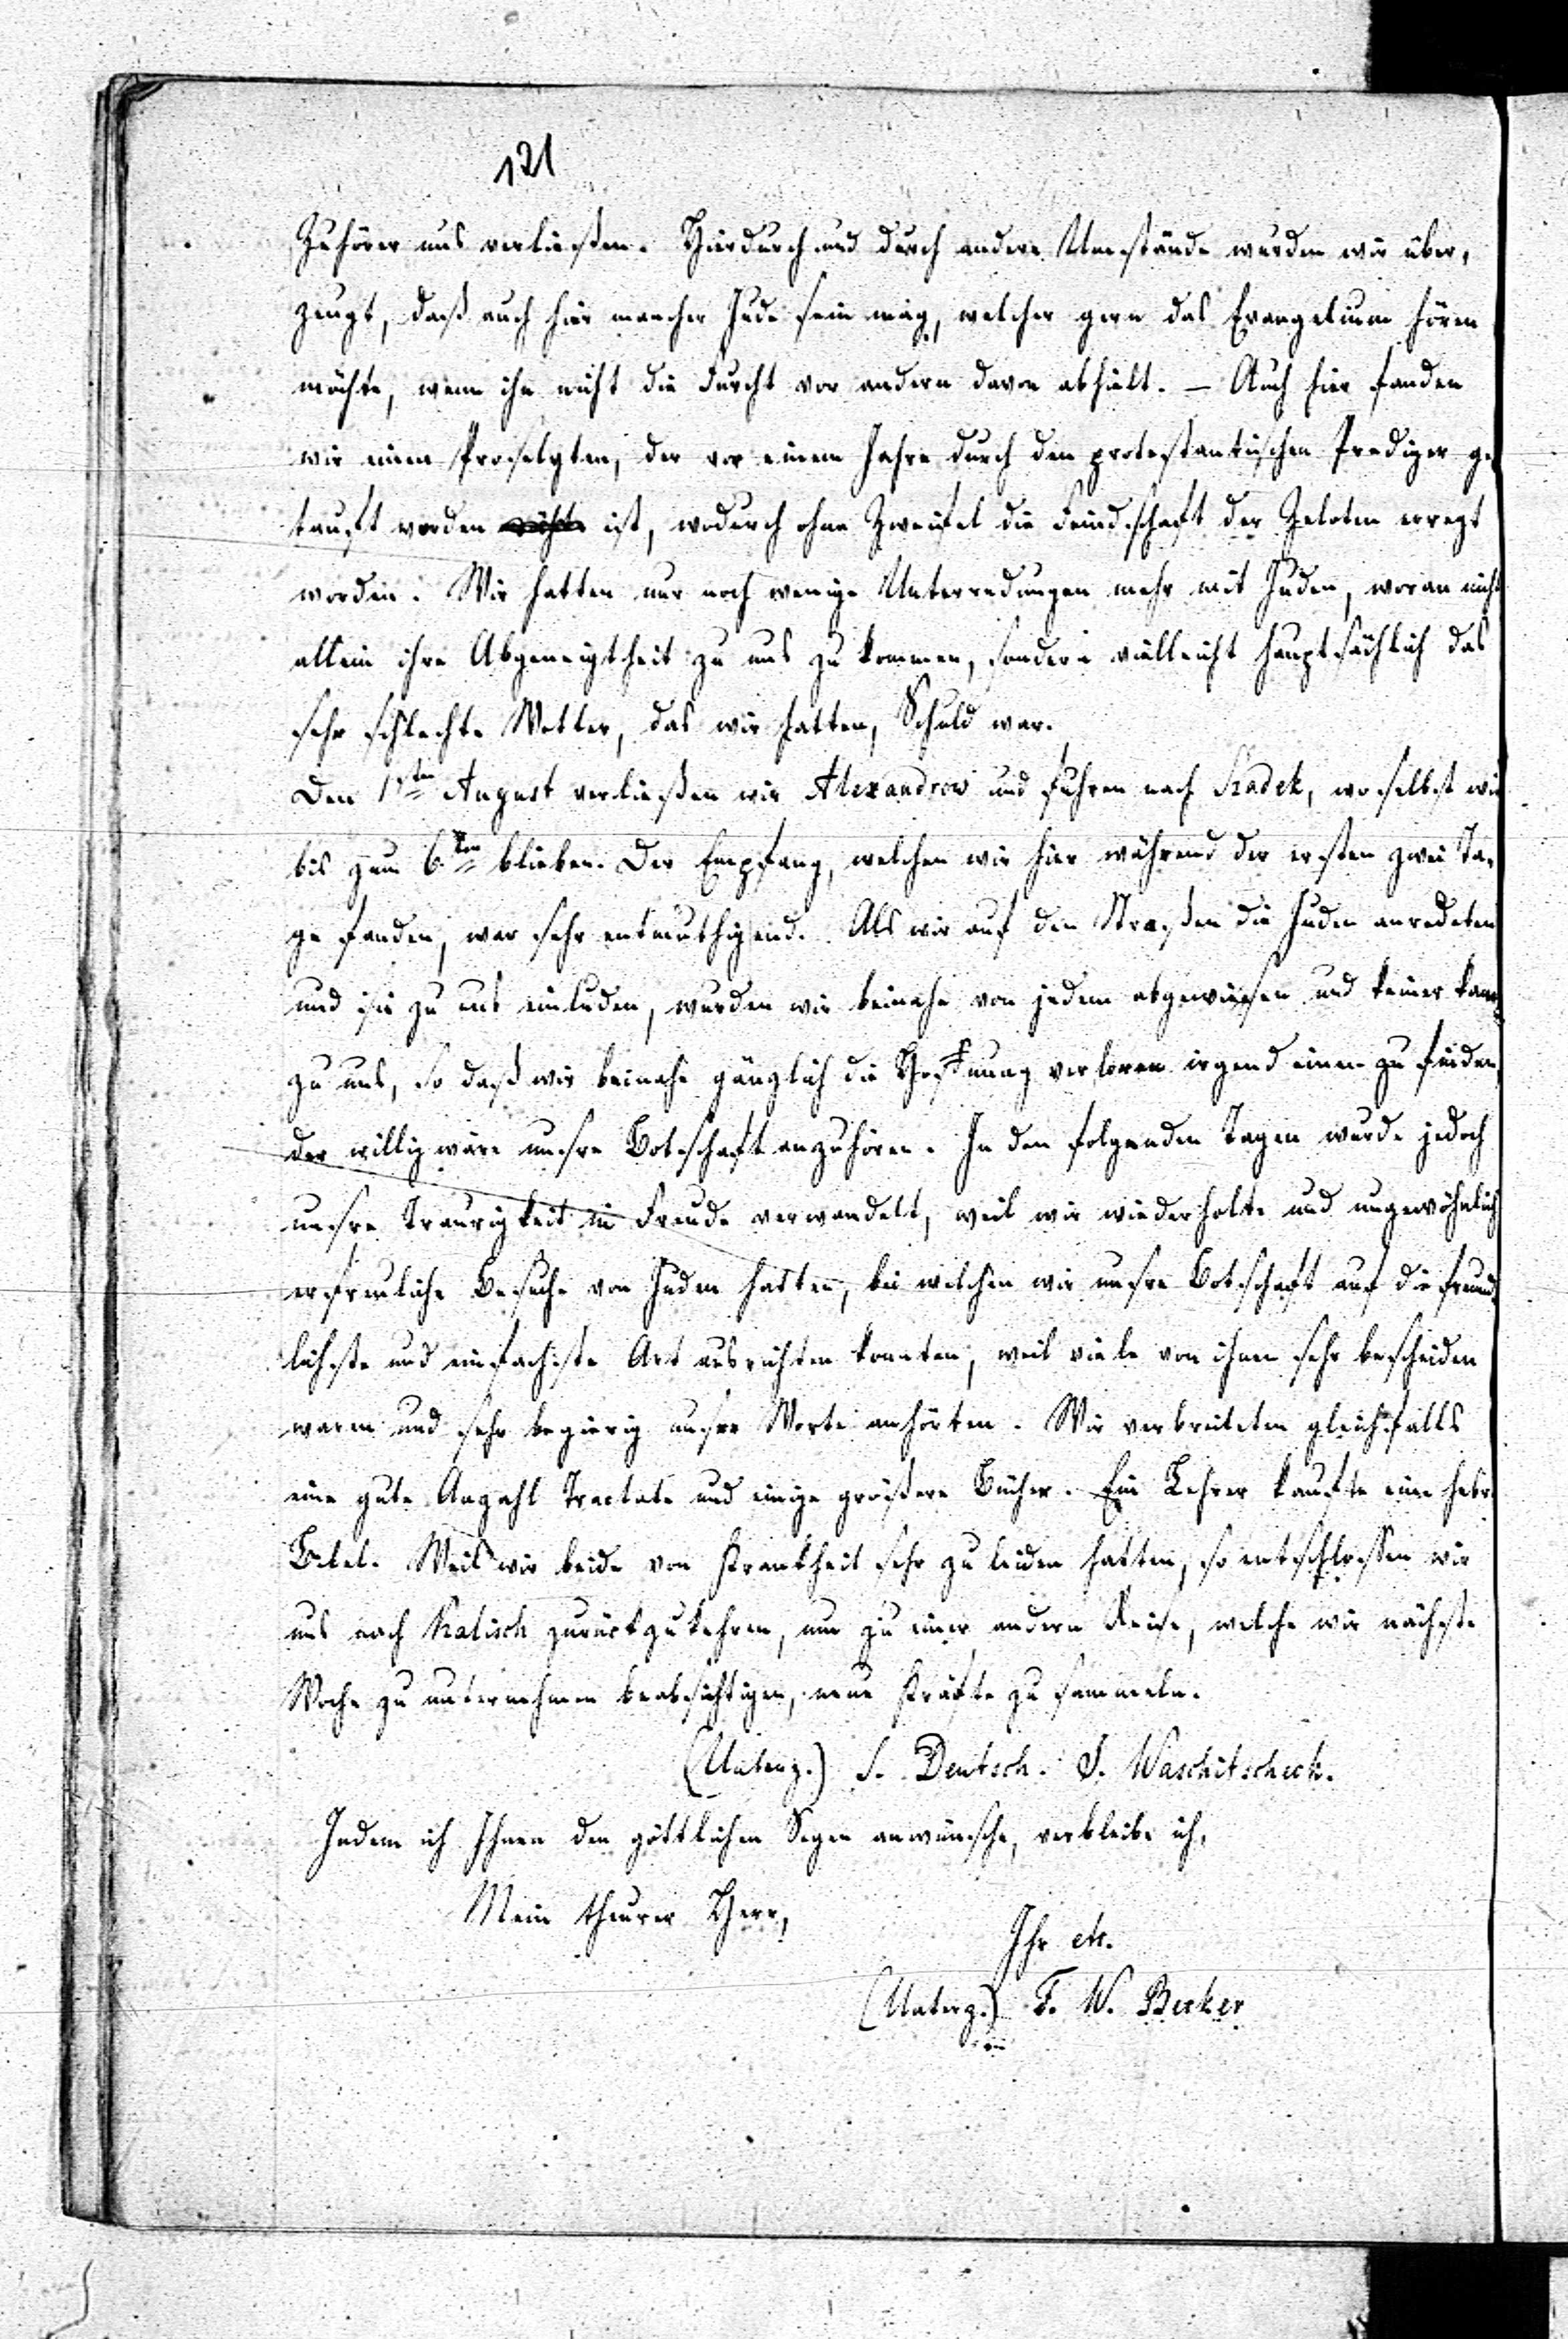 121
Zuhörer uns verließen. Hierdurch und durch andere Umstände wurden wir über,
zeugt, daß auch hier mancher Jude sein mag, welcher gern das Evangelium hören
möchte, wenn ihn nicht die Furcht vor andern davon abhielt. – Auch hier fanden
wir einen Proselyten, der vor einem Jahre durch den protestantischen Prediger ge
tauft worden ist, wodurch ohne Zweifel die Feindschaft der Zeloten erregt
worden. Wir hatten nur noch wenige Unterredungen mehr mit Juden, woran nicht
allein ihre Abgeneigtheit zu uns zu kommen, sondern vielleicht hauptsächlich das
sehr schlechte Wetter, das wir hatten, Schuld war.
Den 1sten August verließen wir Alexandrow und fuhren nach Szadek, woselbst wir
bis zum 6ten blieben. Der Empfang, welchen wir hier während der ersten zwei Ta,
ge fanden, war sehr entmuthigend. Als wir auf den Straßen die Juden anredeten
und sie zu uns einluden, wurden wir beinahe von jedem abgewiesen und keiner kam
zu uns, so daß wir beinahe gänzlich die Hoffnung verloren irgend einen zu finden,
der willig wäre unsre Botschaft anzuhören. In den folgenden Tagen wurde jedoch
unsre Traurigkeit in Freude verwandelt, weil wir wiederholte und ungewöhnlich
erfreuliche Besuche von Juden hatten, bei welchen wir unsre Botschaft auf die freund
lichste und einfachste Art ausrichten konnten, weil viele von ihnen sehr bescheiden
waren und sehr begierig unsre Worte anhörten. Wir verbreiteten gleichfalls
eine gute Anzahl Tractate und einige größere Bücher. Ein Lehrer kaufte eine hebr.
Bibel. Weil wir beide von Krankheit sehr zu leiden hatten, so entschlossen wir
uns nach Kalisch zurückzukehren, um zu einer andern Reise, welche wir nächste
Woche zu unternehmen beabsichtigen, neue Kräfte zu sammeln.
(Unterz.) S. Deutsch. J. Waschitscheck.
Indem ich Ihnen den göttlichen Segen anwünsche, verbleibe ich,
Mein theurer Herr,
Ihr etc.
(Unterz.) F. W. Becker